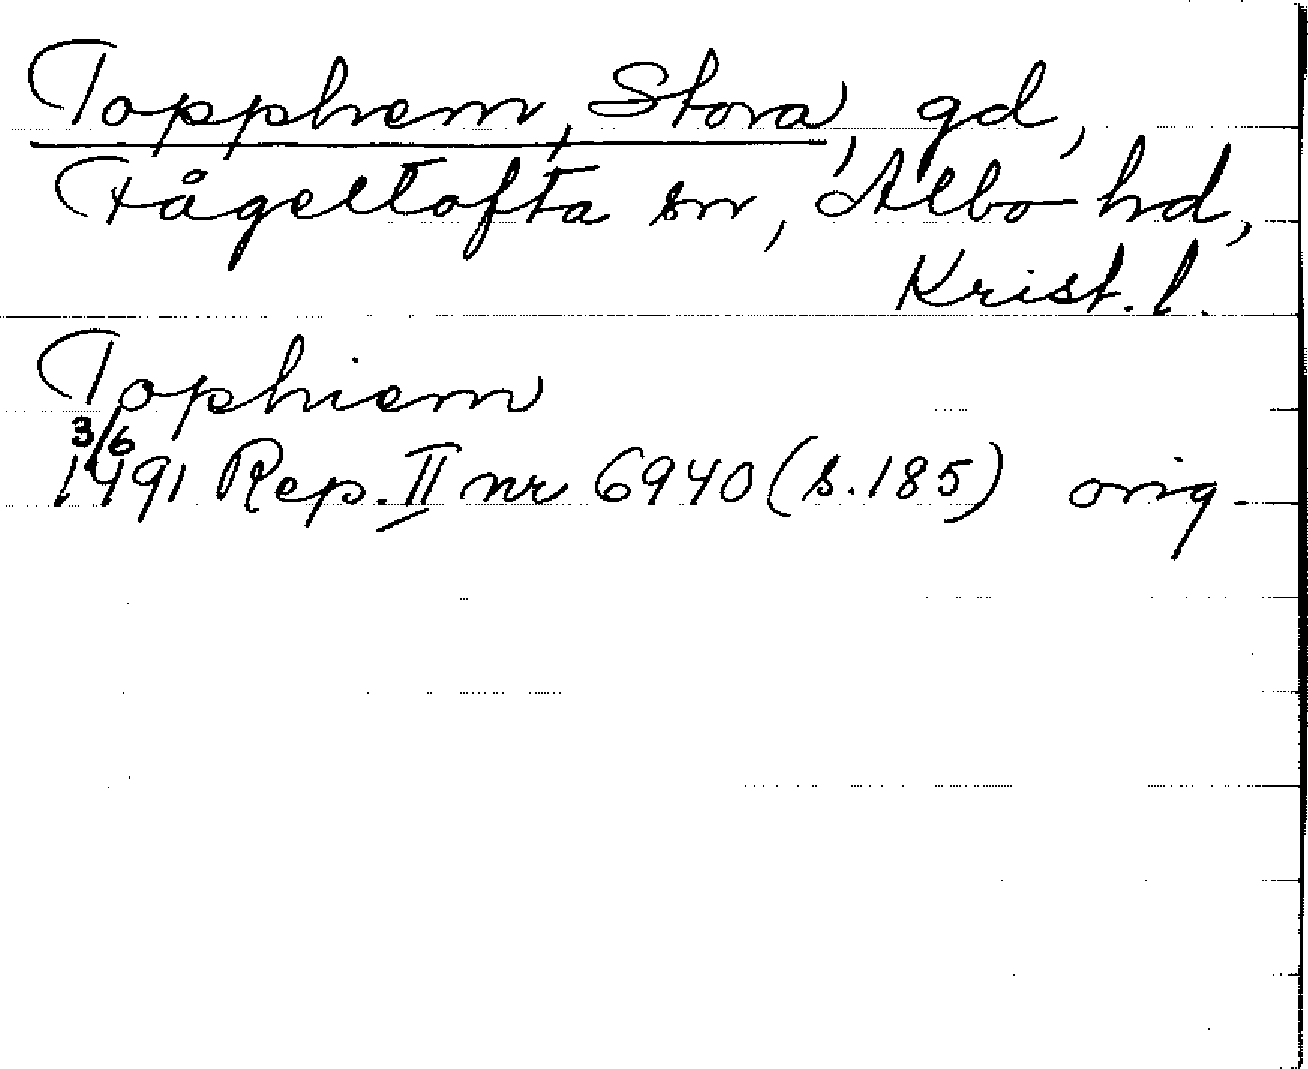 Topphem, Stora, gd,
Fågeltofta sn, Albo hd,
Krist. l.
Tophiem
3/6
1491 Rep. II nr 6940 (s. 185) orig.